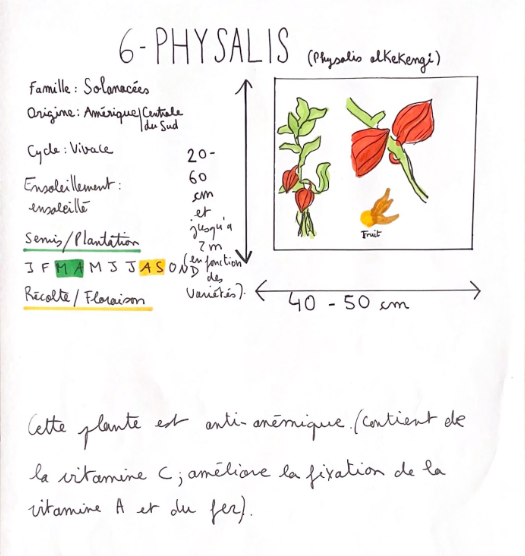 6-PHYSALIS (Physalis alkekengi)
Famille : Solanacées
Origine : Amérique/Centrale
du Sud
Cycle : Vivace
Ensoleillement :
ensoleillé
Semis/Plantation
J F M A M J J A S O N D
Récolte / Floraison
20-
60
cm
et
jusqu'à
2 m
(en fonction
des
variétés).
Fruit
40 - 50 cm
Cette plante est anti-anémique. (contient de
la vitamine C ; améliore la fixation de la
vitamine A et du fer).